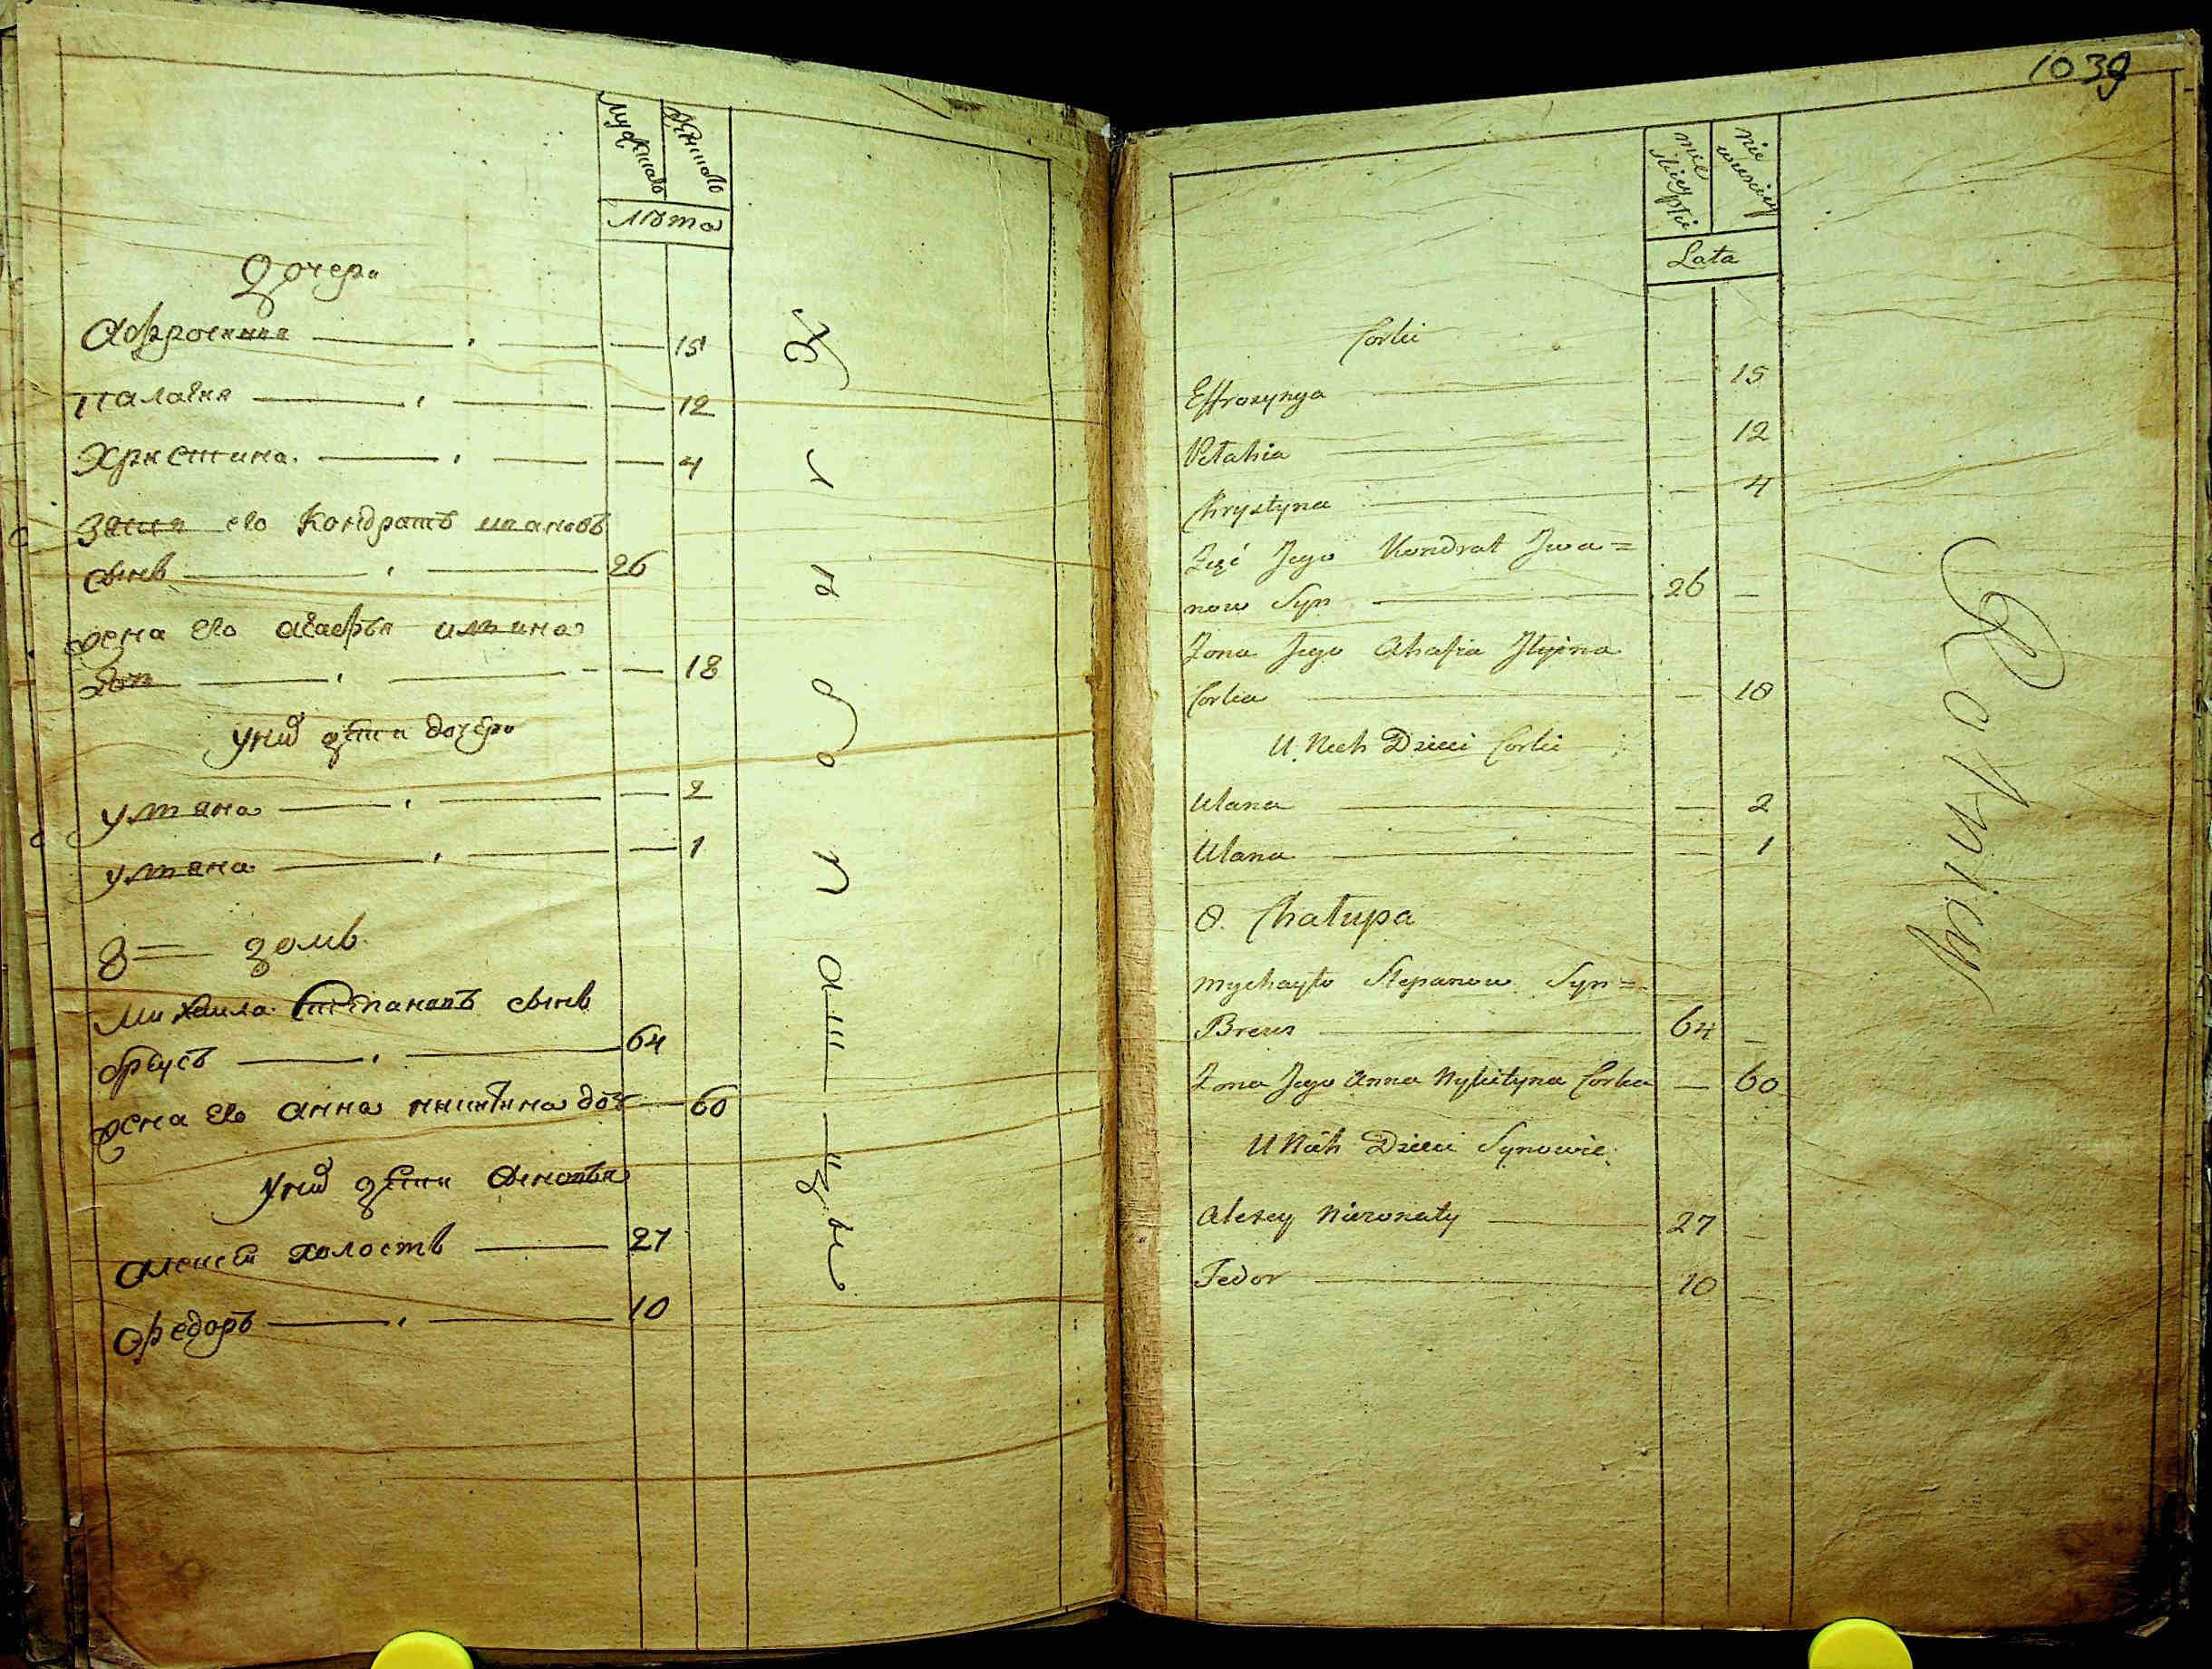 Мужеска
Женска
Лѣта
Дочери
Афросиния 15
Палагия 12
Христина. 4
Зять его Кондратъ ивановъ
сынъ 26
жена его агафья ильина
доч 18
у них дети дочери
ульяна 2
ульяна 1
8 = домъ
Михаила Степановъ сынъ
бреусъ 64
жена его анна никитина доч 60
у них дети сыновья
алексей холостъ 27
федоръ 10
1039
męskiey płci
niewieściey
Lata
Corki
Effrozynya — 15
Pelahia — 12
Chrystyna — 4
Zięć Jego Kondrat Jwa=
now Syn 26 —
Zona Jego Ahafia Jlyina
Corka — 18
U Nich Dzieci Corki
Ulana — 2
Ulana — 1
8. Chałupa
Mychayło Stepanow Syn=
Breus 64 —
Zona Jego Anna Nykityna Corka — 60
U Nich Dzieci Synowie
Alexey Nieżonaty 27 —
Fedor 10 —
Rolnicy